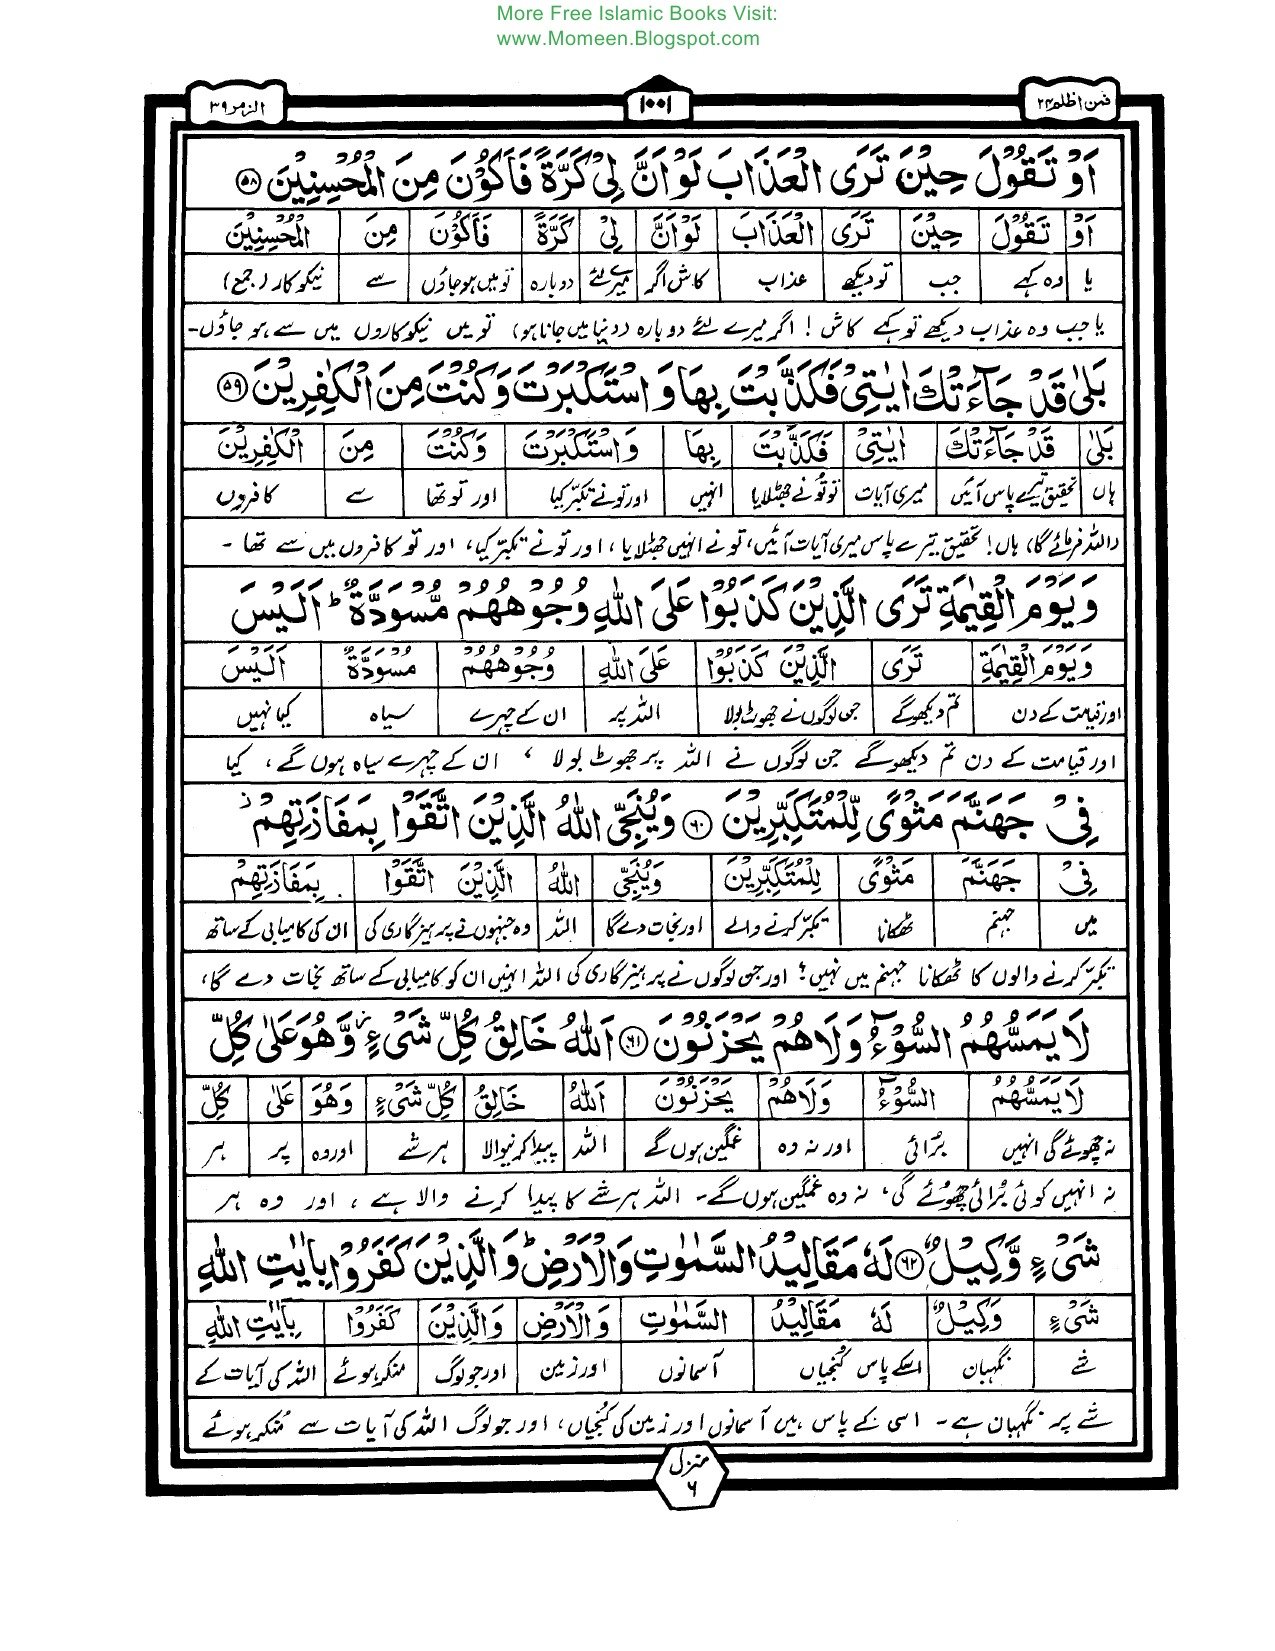 More Free Islamic Books Visit:
www.Momeen.Blogspot.com
فمن اظلم ۲۴
۱۰۰۱
الزمر ۳۹
اَوْ تَقُوْلَ حِيْنَ تَرَى الْعَذَابَ لَوْ اَنَّ لِيْ كَرَّةً فَاَكُوْنَ مِنَ الْمُحْسِنِيْنَ ۵۸
اَوْ تَقُوْلَ حِيْنَ تَرَى الْعَذَابَ لَوْ اَنَّ لِيْ كَرَّةً فَاَكُوْنَ مِنَ الْمُحْسِنِيْنَ
یا وہ کہے جب تو دیکھے عذاب کاش اگر میرے لئے دوبارہ تو میں ہو جاؤں سے نیکوکار (جمع)
یا جب وہ عذاب دیکھے تو کہے کاش ! اگر میرے لئے دوبارہ (دنیا میں جانا ہو) تو میں نیکوکاروں میں سے ہو جاؤں۔
بَلٰى قَدْ جَآءَتْكَ اٰيٰتِيْ فَكَذَّبْتَ بِهَا وَاسْتَكْبَرْتَ وَكُنْتَ مِنَ الْكٰفِرِيْنَ ۵۹
بَلٰى قَدْ جَآءَتْكَ اٰيٰتِيْ فَكَذَّبْتَ بِهَا وَاسْتَكْبَرْتَ وَكُنْتَ مِنَ الْكٰفِرِيْنَ
ہاں تحقیق تیرے پاس آئیں میری آیات تو تُو نے جھٹلایا انہیں اور تو نے تکبّر کیا اور تو تھا سے کافروں
(اللہ فرمائے گا) ہاں! تحقیق تیرے پاس میری آیات آئیں، تو نے انہیں جھٹلایا، اور تو نے تکبّر کیا، اور تو کافروں میں سے تھا ۔
وَيَوْمَ الْقِيٰمَةِ تَرَى الَّذِيْنَ كَذَبُوْا عَلَى اللّٰهِ وُجُوْهُهُمْ مُّسْوَدَّةٌ ؕ اَلَيْسَ
وَيَوْمَ الْقِيٰمَةِ تَرَى الَّذِيْنَ كَذَبُوْا عَلَى اللّٰهِ وُجُوْهُهُمْ مُسْوَدَّةٌ اَلَيْسَ
اور قیامت کے دن تم دیکھو گے جن لوگوں نے جھوٹ بولا اللہ پر ان کے چہرے سیاہ کیا نہیں
اور قیامت کے دن تم دیکھو گے جن لوگوں نے اللہ پر جھوٹ بولا ، ان کے چہرے سیاہ ہوں گے، کیا
فِيْ جَهَنَّمَ مَثْوًى لِّلْمُتَكَبِّرِيْنَ ۶۰ وَيُنَجِّي اللّٰهُ الَّذِيْنَ اتَّقَوْا بِمَفَازَتِهِمْ ز
فِيْ جَهَنَّمَ مَثْوًى لِلْمُتَكَبِّرِيْنَ وَيُنَجِّي اللّٰهُ الَّذِيْنَ اتَّقَوْا بِمَفَازَتِهِمْ
میں جہنم ٹھکانا تکبّر کرنے والے اور نجات دے گا اللہ وہ جنہوں نے پرہیزگاری کی ان کی کامیابی کے ساتھ
تکبّر کرنے والوں کا ٹھکانا جہنم میں نہیں؟ اور جن لوگوں نے پرہیزگاری کی اللہ انہیں ان کو کامیابی کے ساتھ نجات دے گا،
لَا يَمَسُّهُمُ السُّوْٓءُ وَلَا هُمْ يَحْزَنُوْنَ ۶۱ اَللّٰهُ خَالِقُ كُلِّ شَيْءٍ ز وَّهُوَ عَلٰى كُلِّ
لَا يَمَسُّهُمُ السُّوْٓءُ وَلَا هُمْ يَحْزَنُوْنَ اَللّٰهُ خَالِقُ كُلِّ شَيْءٍ وَهُوَ عَلٰى كُلِّ
نہ چھوئے گی انہیں برائی اور نہ وہ غمگین ہوں گے اللہ پیدا کرنیوالا ہر شے اور وہ پر ہر
نہ انہیں کوئی بُرائی چھوئے گی، نہ وہ غمگین ہوں گے۔ اللہ ہر شے کا پیدا کرنے والا ہے ، اور وہ ہر
شَيْءٍ وَّكِيْلٌ ۶۲ لَهٗ مَقَالِيْدُ السَّمٰوٰتِ وَالْاَرْضِ ؕ وَالَّذِيْنَ كَفَرُوْا بِاٰيٰتِ اللّٰهِ
شَيْءٍ وَكِيْلٌ لَهٗ مَقَالِيْدُ السَّمٰوٰتِ وَالْاَرْضِ وَالَّذِيْنَ كَفَرُوْا بِاٰيٰتِ اللّٰهِ
شے نگہبان اسکے پاس کنجیاں آسمانوں اور زمین اور جو لوگ منکر ہوئے اللہ کی آیات کے
شے پر نگہبان ہے۔ اسی کے پاس ہیں آسمانوں اور زمین کی کُنجیاں، اور جو لوگ اللہ کی آیات سے مُنکر ہوئے
منزل
۶